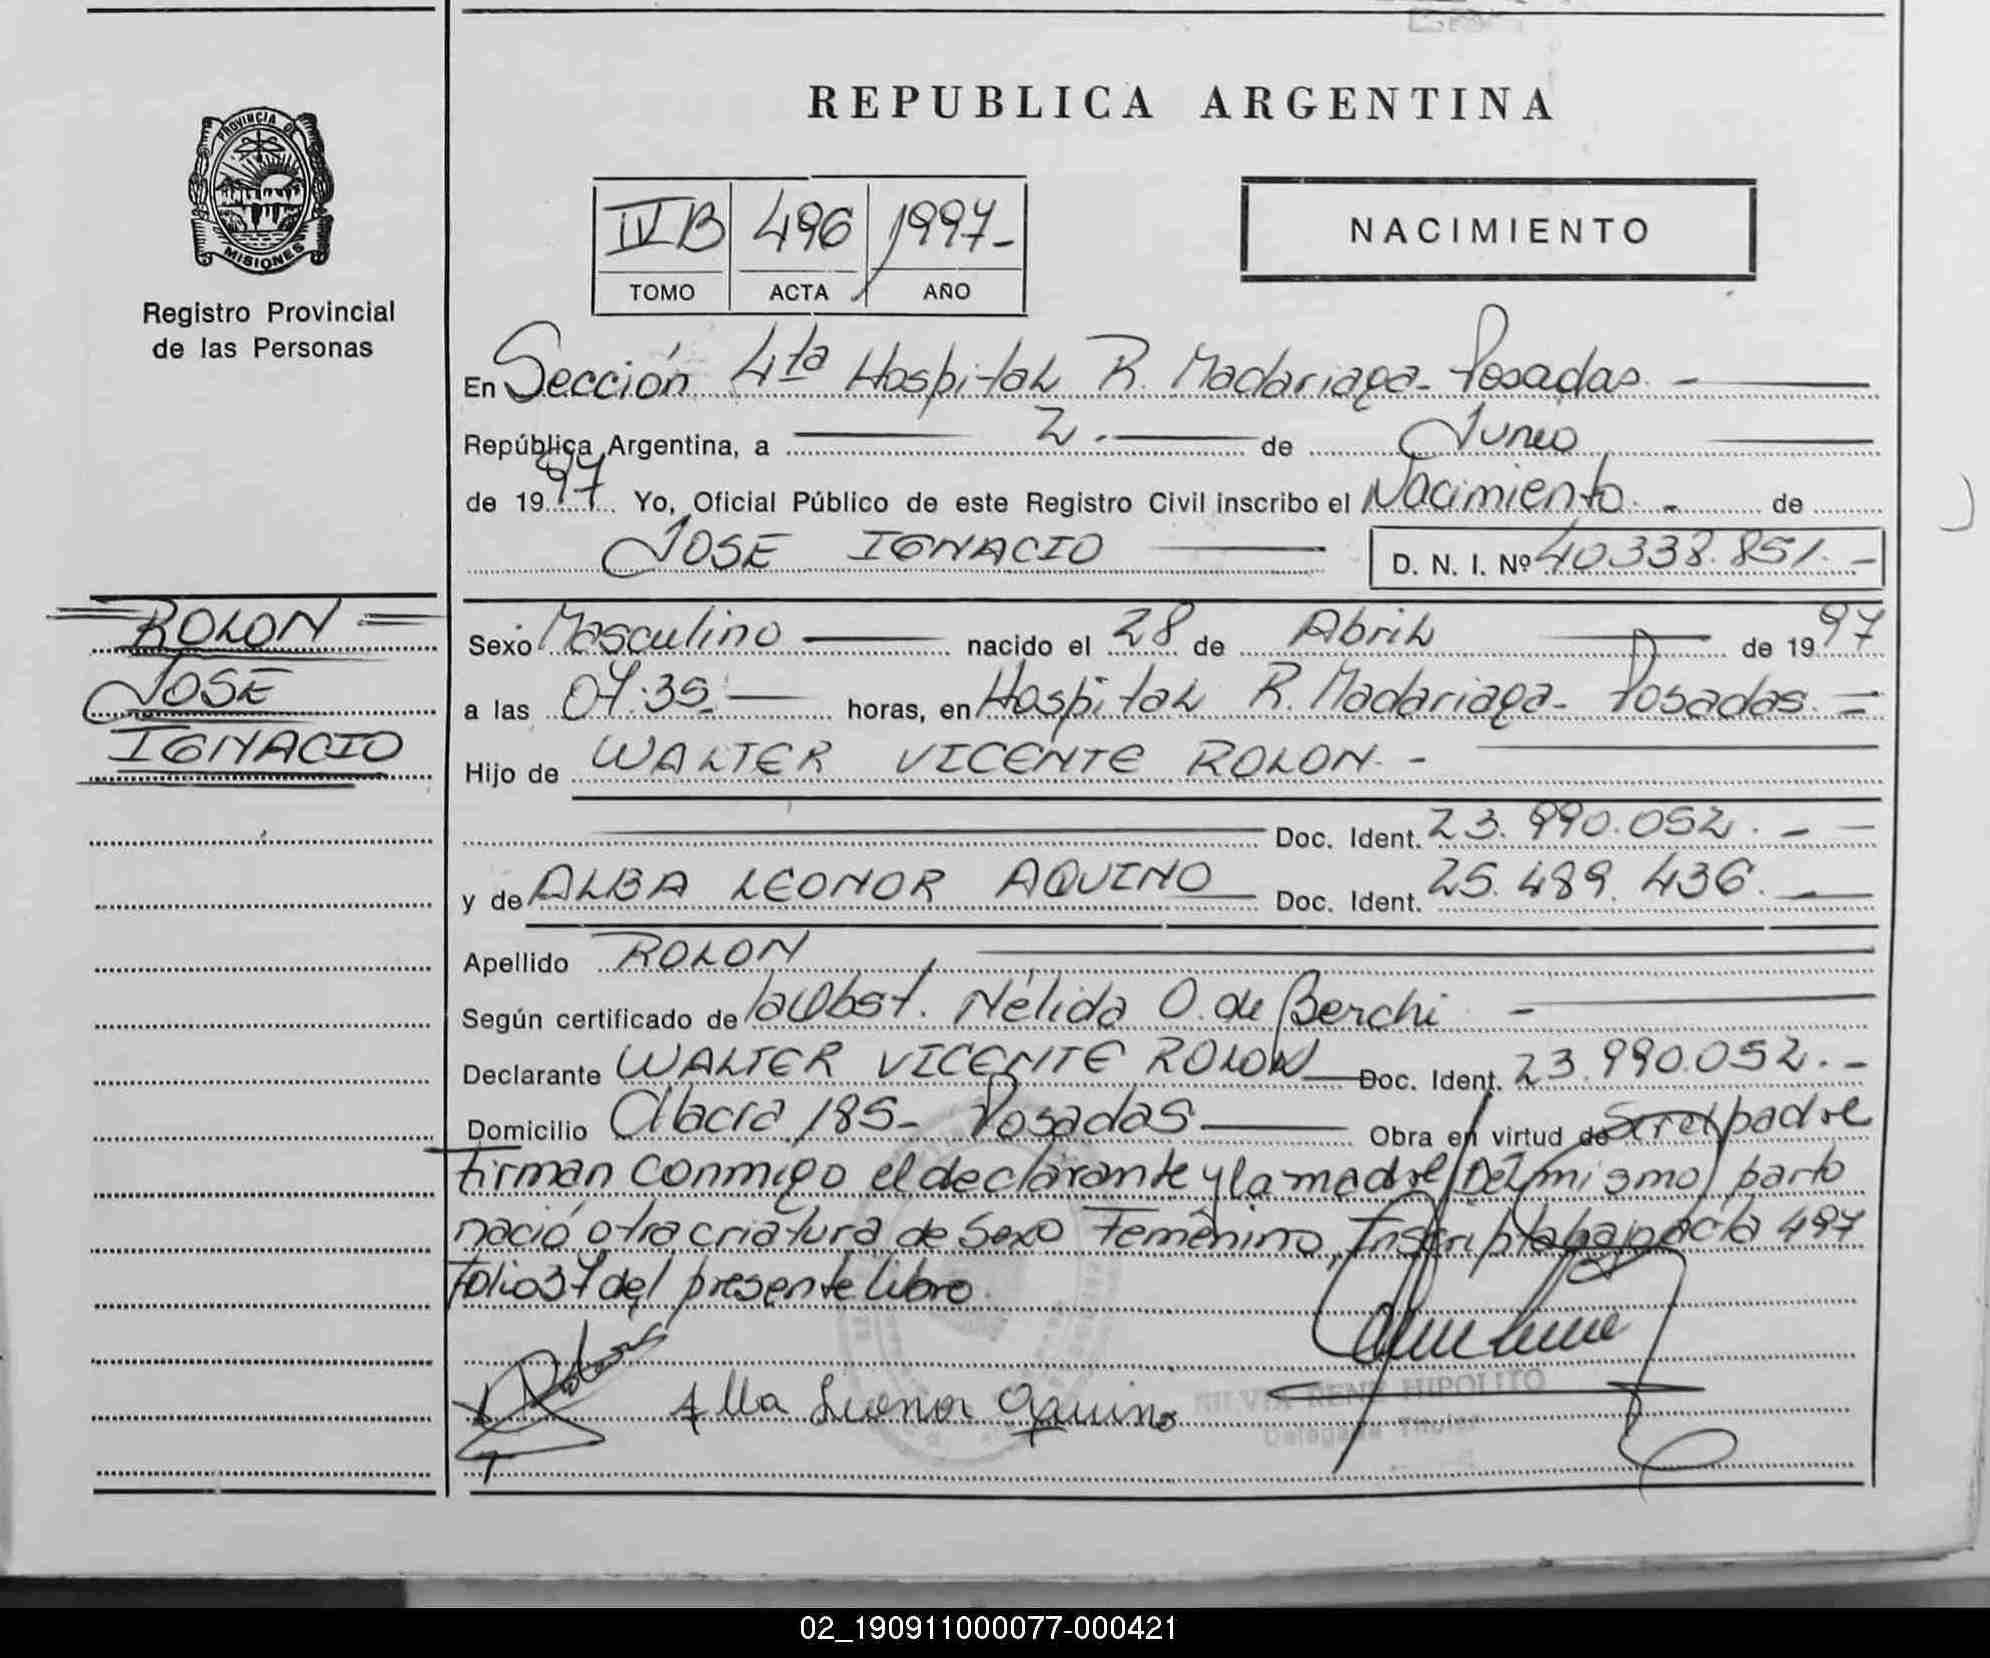 REPUBLICA ARGENTINA
PROVINCIA DE
MISIONES
Registro Provincial
de las Personas
IV B 496 1997-
TOMO ACTA AÑO
NACIMIENTO
En Sección 4ta Hospital R. Madariaga- Posadas. -
República Argentina, a 2. de Junio
de 1997 Yo, Oficial Público de este Registro Civil inscribo el Nacimiento. - de
JOSE IGNACIO D. N. I. Nº 40338.851. -
ROLON
JOSE
IGNACIO
Sexo Masculino nacido el 28 de Abril de 1997
a las 07:35. horas, en Hospital R. Madariaga- Posadas. =
Hijo de WALTER VICENTE ROLON. -
Doc. Ident. 23.990.052. - -
y de ALBA LEONOR AQUINO Doc. Ident. 25.489.436. -
Apellido ROLON
Según certificado de la Obst. Nélida O. de Berchi -
Declarante WALTER VICENTE ROLON Doc. Ident. 23.990.052. -
Domicilio 185- Posadas Obra en virtud de ser el padre
firman conmigo el declarante y la madre. Del mismo parto
nació otra criatura de sexo Femenino, Inscripta bajo acta 497
folio 37 del presente libro.
Alba Leonor Aquino
SILVIA RENE HIPOLITO
Delegada Titular
02_190911000077-000421